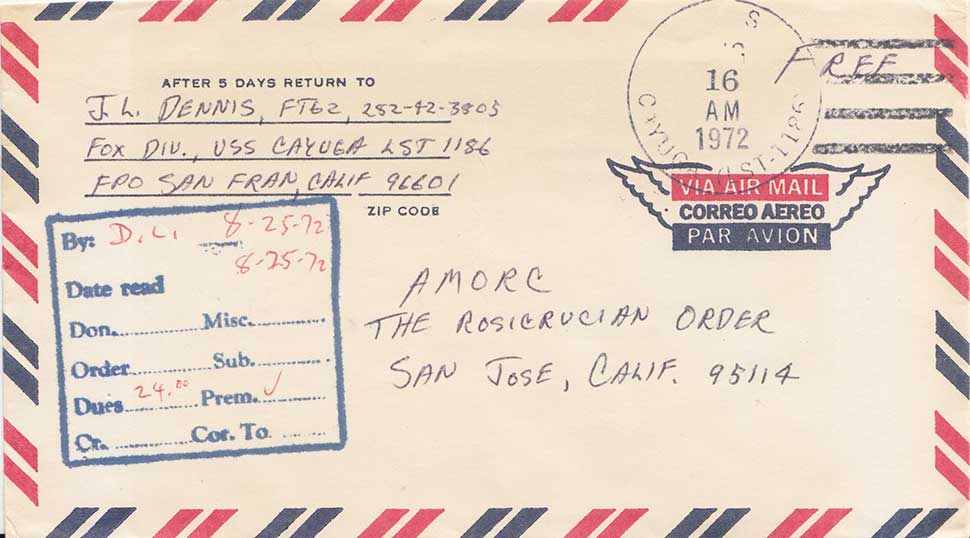 AFTER 5 DAYS RETURN TO
J. L. DENNIS, FT62, 282-42-3803
FOX DIV., USS CAYUGA LST 1186
FPO SAN FRAN, CALIF 96601
ZIP CODE
S
16
AM
1972
CAYUGA LST-1186
FREE
VIA AIR MAIL
CORREO AEREO
PAR AVION
By: D.L. 8-25-72
8-25-72
Date read
Don. Misc.
Order Sub.
Dues 24.00 Prem. ✓
Cr. Cor. To
AMORC
THE ROSICRUCIAN ORDER
SAN JOSE, CALIF. 95114